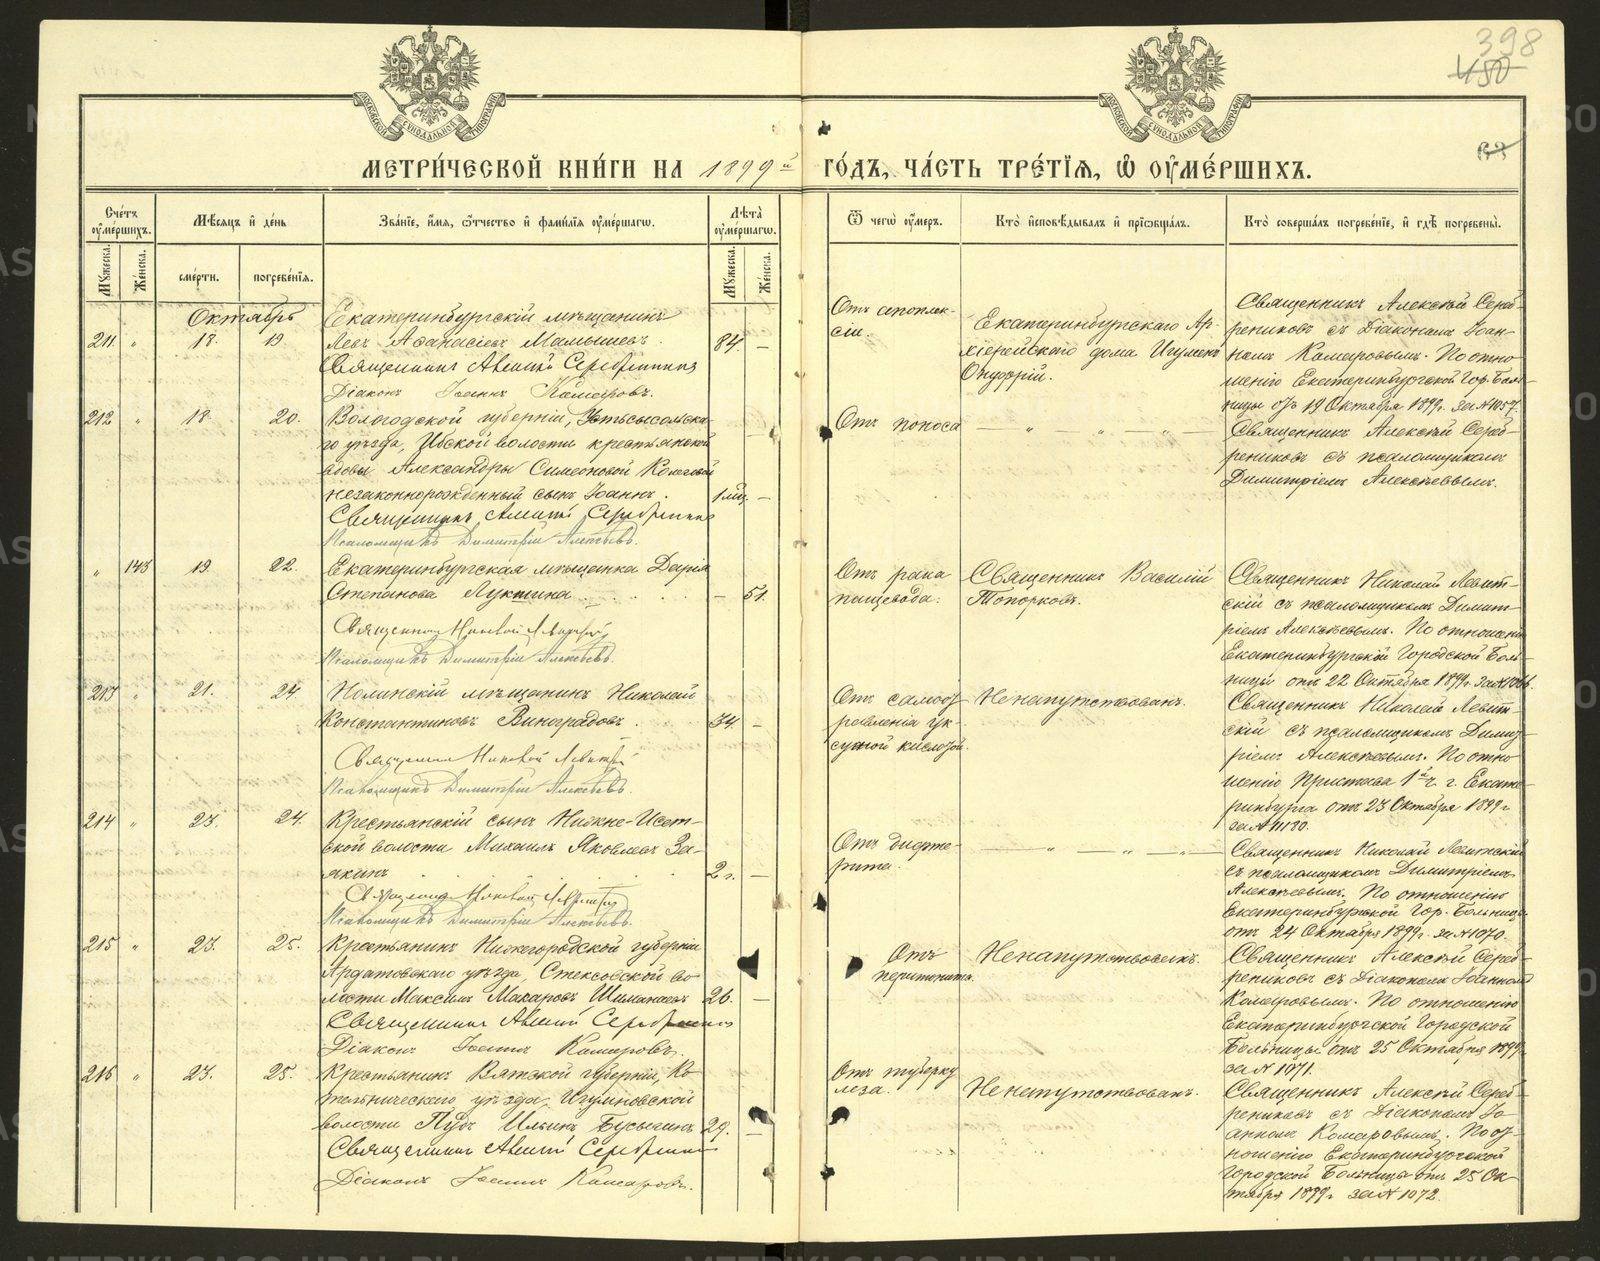 398
450
МЕТРИ́ЧЕСКОЙ КНИ́ГИ НА 1899й ГО́ДЪ, ЧА́СТЬ ТРЕ́ТІѦ, Ѡ ОУМЕ́РШИХЪ.
Сче́тъ оуме́ршихъ.
Мꙋжеска.
Же́нска.
Мѣсѧцъ и де́нь
сме́рти.
погребе́нїѧ.
Зва́нїе, и́мѧ, ѻ́тчество и фами́лїѧ оуме́ршагѡ.
Лѣта̀ оуме́ршагѡ.
Мꙋжеска.
Же́нска.
Ѿ чегѡ̀ оу́меръ.
Кто̀ и҆сповѣ́дывалъ и прїѡбща́лъ.
Кто̀ соверша́лъ погребе́нїе, и гдѣ̀ погребены̀.
Октябрь
211 " 18. 19.
Екатеринбургскій мѣщанинъ
Левъ Аѳанасіевъ Малышевъ. 84. —
Священникъ Алексій Серебренниковъ
Діаконъ Іоаннъ Комаровъ.
Отъ апоплек-
сіи.
Екатеринбургскаго Ар-
хіерейскаго дома Игуменъ
Онуфрій.
Священникъ Алексѣй Сереб-
рениковъ съ Діакономъ Іоан-
номъ Комаровымъ. По отно
шенію Екатеринбургской Гор. Боль-
ницы отъ 19 Октября 1899г. за №1057.
212 " 18. 20.
Вологодской губерніи, Устьсысольска-
го уѣзда, Ибской волости крестьянской
вдовы Александры Симеоновой Колеговой
незаконнорожденный сынъ Іоаннъ. 1 мѣц. —
Священникъ Алексій Серебренников
Псаломщикъ Димитрій Алексѣевъ.
Отъ поноса
— " — " — " —
Священникъ Алексѣй Сереб-
рениковъ съ псаломщикомъ
Димитріемъ Алексѣевымъ.
" 143 19. 22.
Екатеринбургская мѣщанка Дарія
Степанова Лукшина — 51.
Священникъ Николай Левитскій
Псаломщикъ Димитрій Алексѣевъ.
Отъ рака
пищевода.
Священникъ Василій
Топорковъ.
Священникъ Николай Левит-
скій съ псаломщикомъ Димит-
ріемъ Алексѣевымъ. По отношенію
Екатеринбургской Городской Боль-
ницы отъ 22 Октября 1899г. за №1066.
213 " 21. 24.
Нолинскій мѣщанинъ Николай
Константиновъ Виноградовъ. 34. —
Священникъ Николай Левитскій
Псаломщикъ Димитрій Алексѣевъ.
Отъ самоот
равленія ук-
сусной кислотой.
Ненапутствованъ.
Священникъ Николай Левит-
скій съ псаломщикомъ Димит-
ріемъ Алексѣевымъ. По отно
шенію Пристава 1й ч. г. Екате-
ринбурга отъ 23 Октября 1899г
за №11130.
214 " 23. 24.
Крестьянскій сынъ Нижне-Исет-
ской волости Михаилъ Яковлевъ За-
якинъ 2 г. —
Священникъ Николай Левитскій
Псаломщикъ Димитрій Алексѣевъ.
Отъ дифте-
рита.
— " — " — " —
Священникъ Николай Левитскій
съ псаломщикомъ Димитріемъ
Алексѣевымъ. По отношенію
Екатеринбургской Гор. Больницы
отъ 24 Октября 1899г. за №1070.
215 " 23. 25.
Крестьянинъ Нижегородской губерніи
Ардатовскаго уѣзда, Стексовской во-
лости Максимъ Макаровъ Шиманаевъ 26. —
Священникъ Алексій Серебренниковъ
Діаконъ Іоаннъ Комаровъ.
Отъ
перитонита.
Ненапутствованъ.
Священникъ Алексѣй Сереб-
рениковъ съ Діакономъ Іоанномъ
Комаровымъ. По отношенію
Екатеринбургской Городской
Больницы отъ 25 Октября 1899г.
за № 1071.
216 " 23. 25.
Крестьянинъ Вятской губерніи, Ко-
тельническаго уѣзда, Игумновской
волости Пудъ Ильинъ Бусыгинъ 29. —
Священникъ Алексій Серебренников
Діаконъ Іоаннъ Комаровъ.
Отъ туберку
леза.
Ненапутствованъ.
Священникъ Алексѣй Сереб-
рениковъ съ Діакономъ Іо-
анномъ Комаровымъ. По от-
ношенію Екатеринбургской
Городской Больницы отъ 25 Ок-
тября 1899г за № 1072.